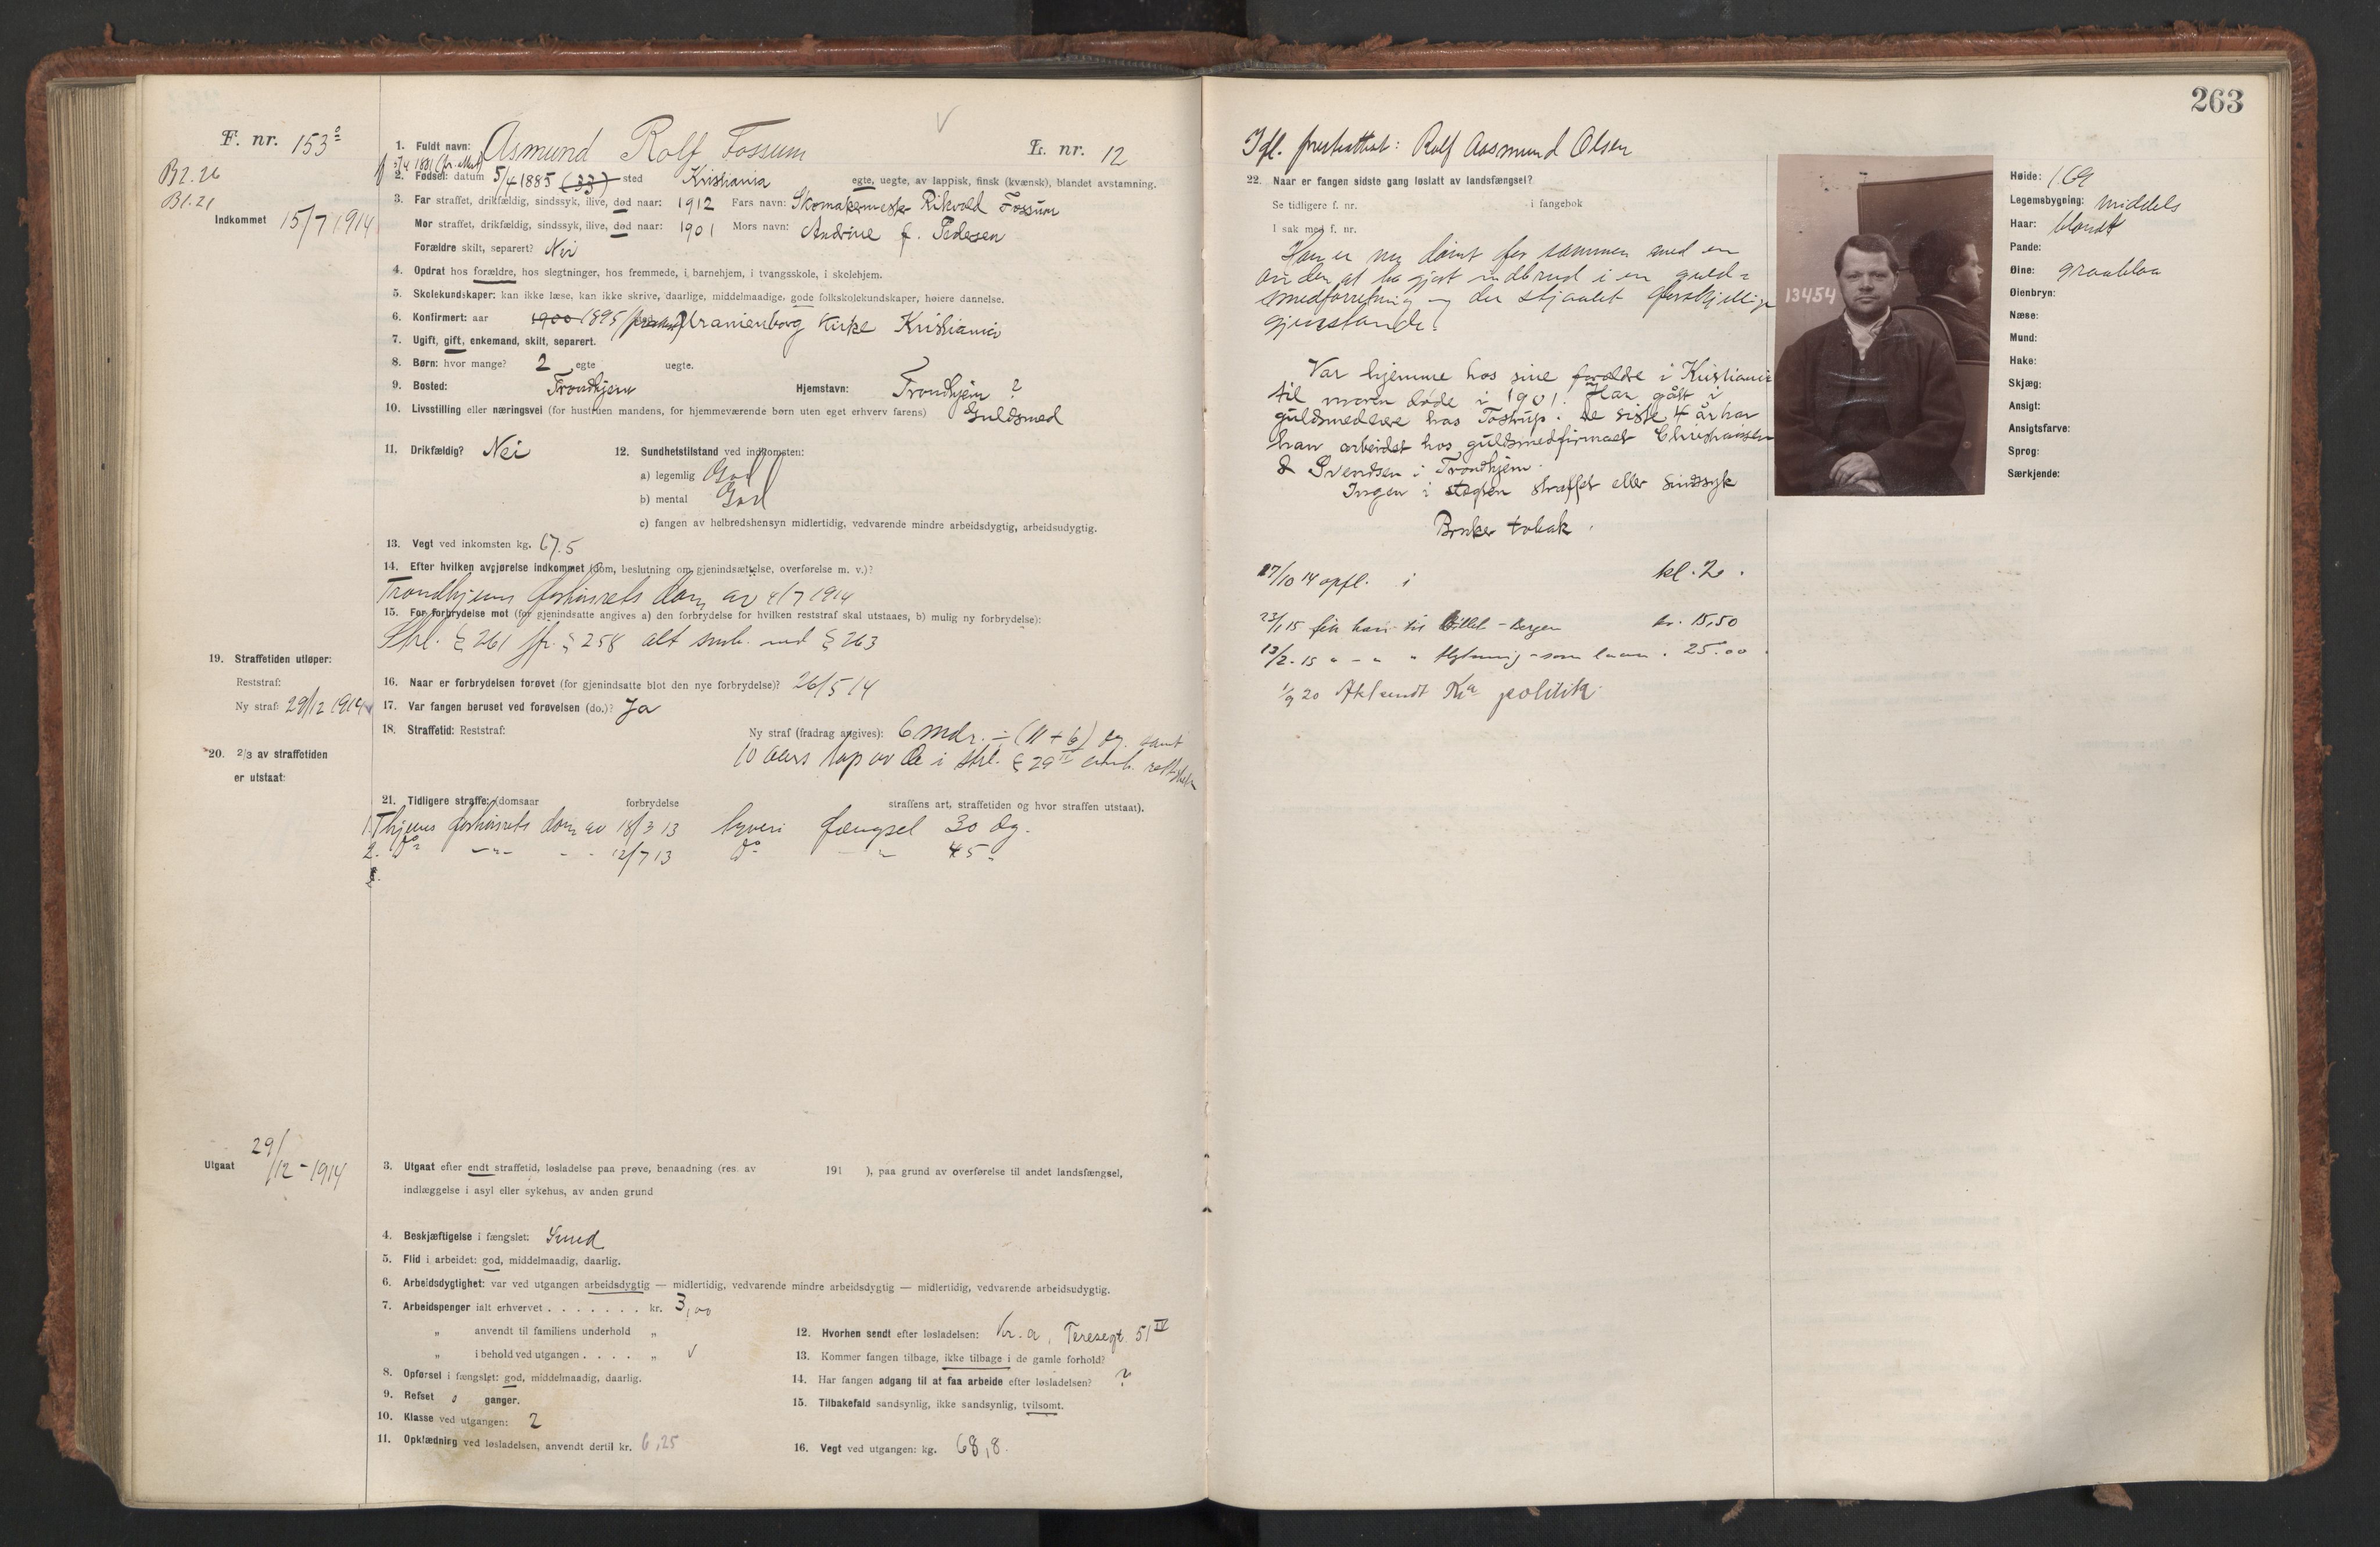 F. nr. 153
B2.26
B1.21
Indkommet 15/7 1914
1. Fuldt navn: Asmund Rolf Fossum L. nr. 12
2. Fødsel: datum 5/4 1885 (33) sted Kristiania egte, uegte, av lappisk, finsk (kvænsk), blandet avstamning.
3. Far straffet, drikfældig, sindssyk, ilive, død naar: 1912 Fars navn: Skomakermester Rikvold Fossum
Mor straffet, drikfældig, sindssyk, ilive, død naar: 1901 Mors navn: Andrine f. Pedersen
Forældre skilt, separert? Nei
4. Opdrat hos forældre, hos slegtninger, hos fremmede, i barnehjem, i tvangsskole, i skolehjem.
5. Skolekundskaper: kan ikke læse, kan ikke skrive, daarlige, middelmaadige, gode folkskolekundskaper, høiere dannelse.
6. Konfirmert: aar 1900 1895 Uranienborg Kirke Kristiania
7. Ugift, gift, enkemand, skilt, separert.
8. Børn: hvor mange? 2 egte uegte.
9. Bosted: Trondhjem Hjemstavn: Trondhjem ?
10. Livsstilling eller næringsvei (for hustruen mandens, for hjemmeværende børn uten eget erhverv farens) Guldsmed
11. Drikfældig? Nei 12. Sundhetstilstand ved indkomsten:
a) legemlig God
b) mental God
c) fangen av helbredshensyn midlertidig, vedvarende mindre arbeidsdygtig, arbeidsudygtig.
13. Vegt ved inkomsten kg. 67.5
14. Efter hvilken avgjørelse indkommet (dom, beslutning om gjenindsættelse, overførelse m. v.)?
Trondhjems forhørsrets dom av 4/7 1914
15. For forbrydelse mot (for gjenindsatte angives a) den forbrydelse for hvilken reststraf skal utstaaes, b) mulig ny forbrydelse):
Strl. § 261 jfr. § 258 alt smh. med § 263
19. Straffetiden utløper:
Reststraf:
Ny straf: 29/12 1914
16. Naar er forbrydelsen forøvet (for gjenindsatte blot den nye forbrydelse)? 26/5 14
17. Var fangen beruset ved forøvelsen (do.)? Ja
18. Straffetid: Reststraf: Ny straf (fradrag angives): 6 mdr. ÷ (11 + 6) dg. samt
10 aars tap av de i strl. § 29 II
20. 2/3 av straffetiden
er utstaat:
21. Tidligere straffe: (domsaar forbrydelse straffens art, straffetiden og hvor straffen utstaat).
1. Thjems forhørsrets dom av 18/3 13 tyveri fængsel 30 dg.
2. do -"- - - 12/7 13 do - " - 45 "
Utgaat 29/12 - 1914
3. Utgaat efter endt straffetid, løsladelse paa prøve, benaadning (res. av 191 ), paa grund av overførelse til andet landsfængsel,
indlæggelse i asyl eller sykehus, av anden grund
4. Beskjæftigelse i fængslet: Smed
5. Flid i arbeidet: god, middelmaadig, daarlig.
6. Arbeidsdygtighet: var ved utgangen arbeidsdygtig — midlertidig, vedvarende mindre arbeidsdygtig — midlertidig, vedvarende arbeidsudygtig.
7. Arbeidspenger ialt erhvervet . . . . . . . kr. 3,00
„ anvendt til familiens underhold „
„ i behold ved utgangen . . . . „ √
8. Opførsel i fængslet: god, middelmaadig, daarlig.
9. Refset 0 ganger.
10. Klasse ved utgangen: 2
11. Opklædning ved løsladelsen, anvendt dertil kr. 6,25
12. Hvorhen sendt efter løsladelsen: Kr.a, Teresegt. 51 IV
13. Kommer fangen tilbage, ikke tilbage i de gamle forhold?
14. Har fangen adgang til at faa arbeide efter løsladelsen? ?
15. Tilbakefald sandsynlig, ikke sandsynlig, tvilsomt.
16. Vegt ved utgangen: kg. 68,8
263
Rolf Aasmund Olsen
22. Naar er fangen sidste gang løslatt av landsfængsel?
Se tidligere f. nr. i fangebok
I sak med f. nr.
Han er nu dømt for sammen med en
anden at ha gjort indbrud i en guld=
smedforretning og der stjaalet forskjellige
gjenstande.
Var hjemme hos sine forældre i Kristiania
til moren døde i 1901. Har gått i
guldsmedlære hos Tostrup. De siste 4 år har
han arbeidet hos guldsmedfirmaet Christiansen
& Svendsen i Trondhjem.
Ingen i slegten straffet eller sindssyk
Bruker tobak.
27/10 14 opfl. i kl. 2.
23/1 15 fik han til Billet - Bergen kr. 15,50
13/2 - 15 " - " " som laan . 25.00
1/9 20 Kr.a politik.
13454
Høide: 169
Legemsbygning: middels
Haar: blondt
Pande:
Øine: graablaa
Øienbryn:
Næse:
Mund:
Hake:
Skjæg:
Ansigt:
Ansigtsfarve:
Sprog:
Særkjende: